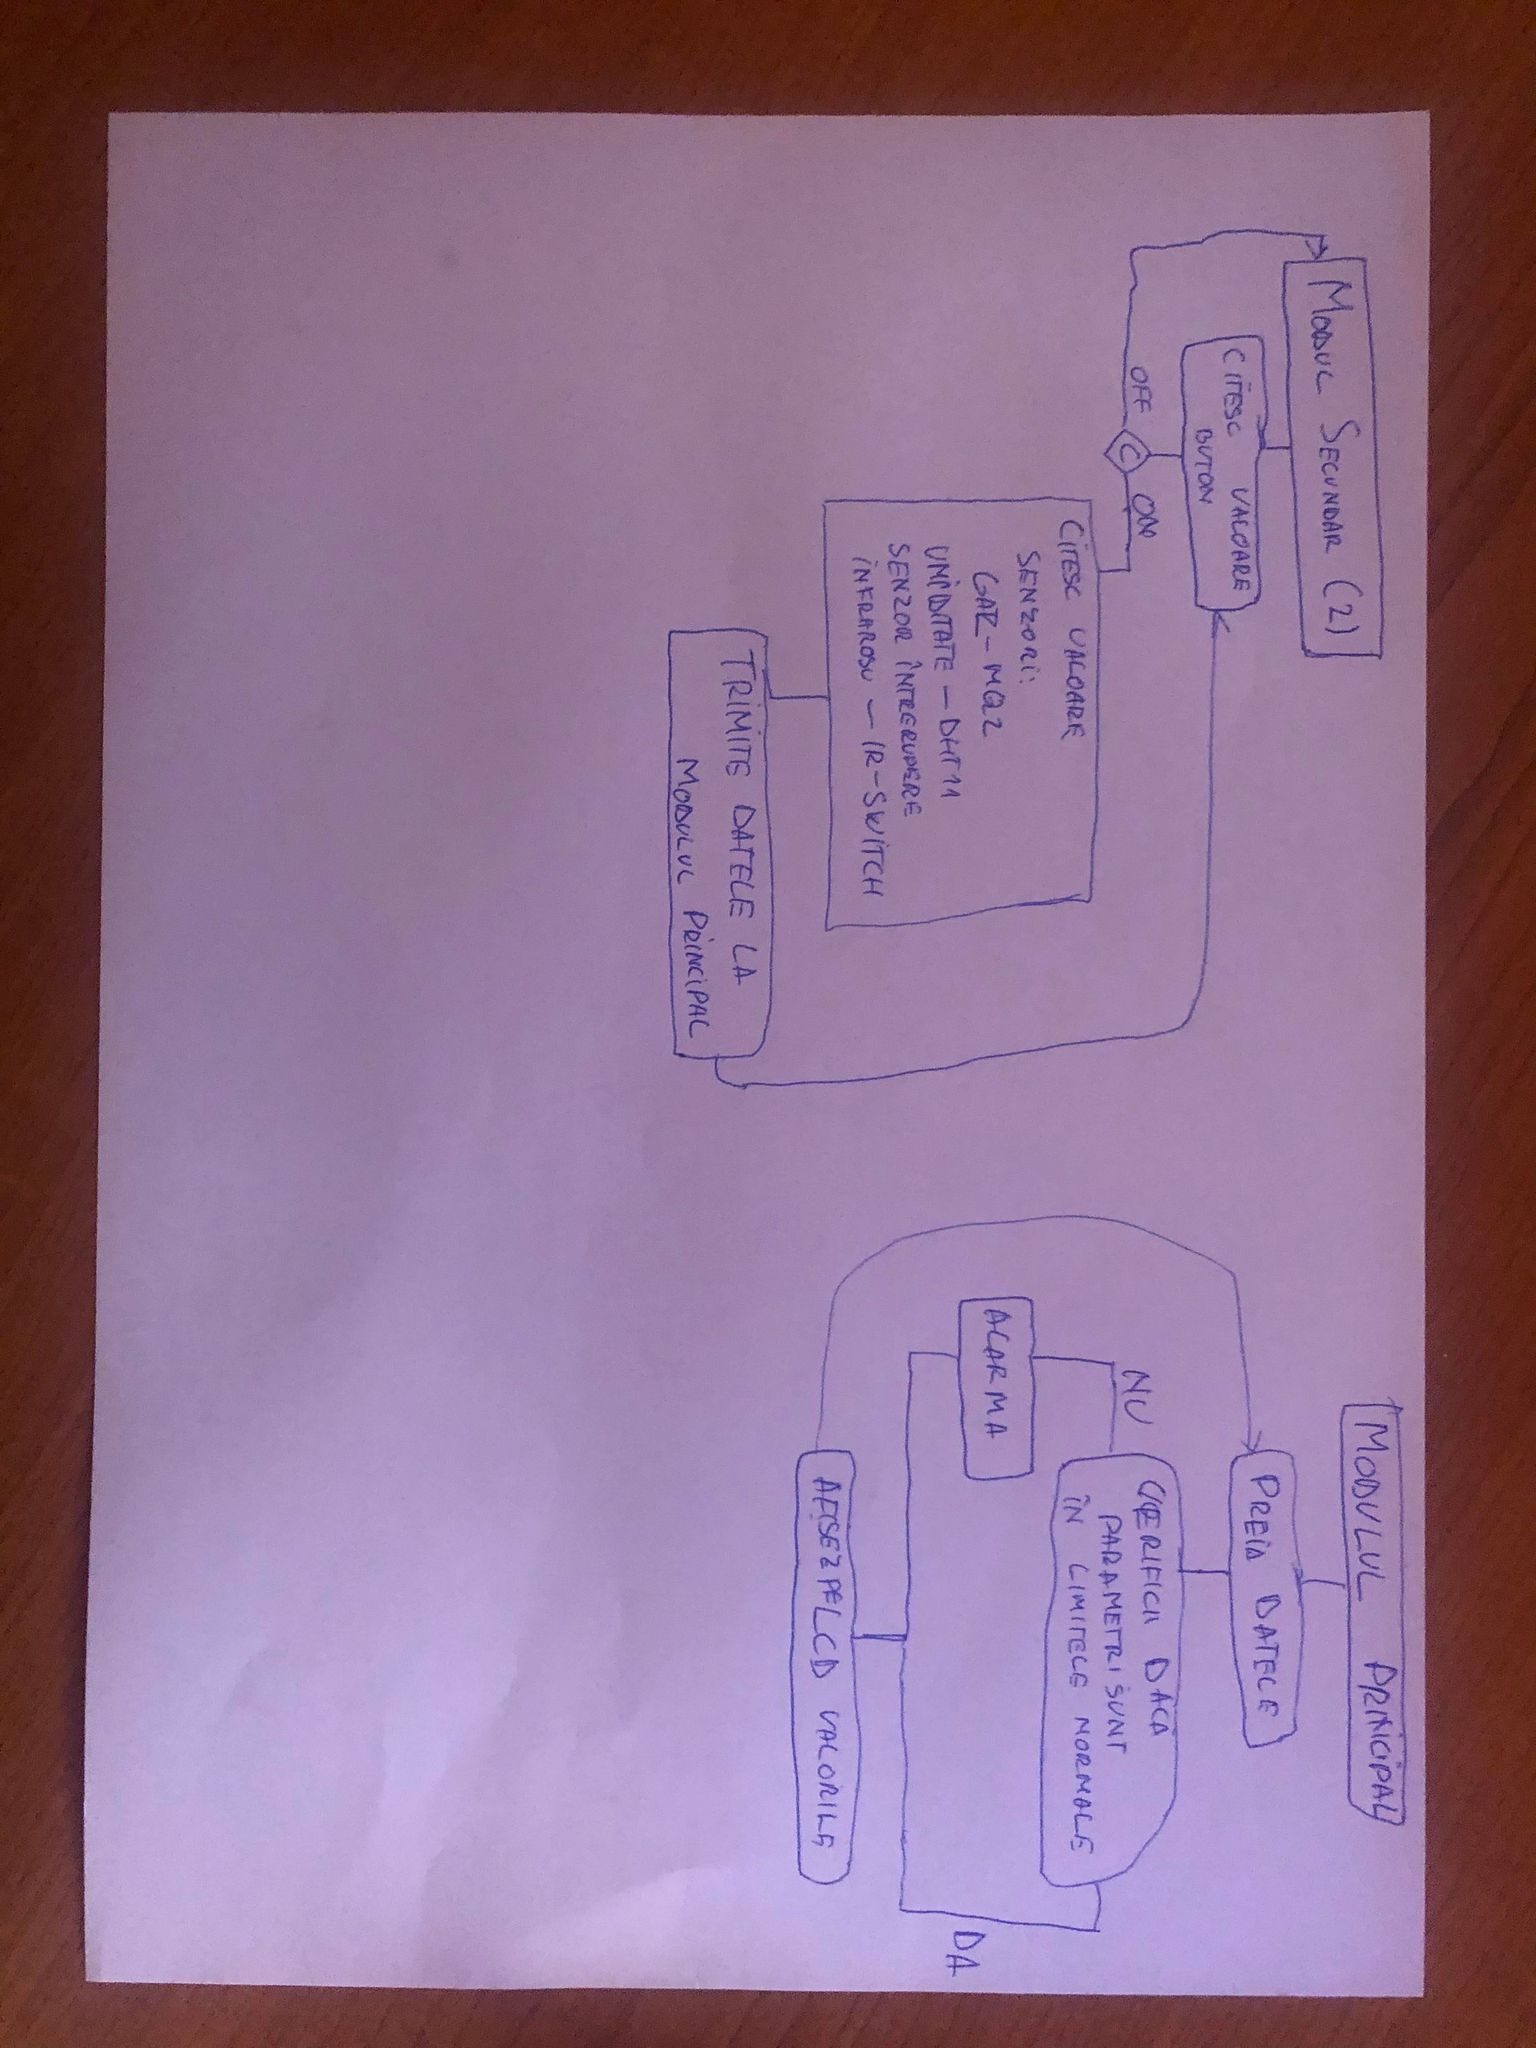 MODUL SECUNDAR (2)
CITESC VALOARE
BUTON
OFF
C
ON
CITESC VALOARE
SENZORI:
GAZ-MQ2
UMIDITATE - DHT11
SENZOR ÎNTRERUPERE
INFRAROSU - IR-SWITCH
TRIMITE DATELE LA
MODULUL PRINCIPAL
MODULUL PRINCIPAL
PREIA DATELE
VERIFICA DACA
PARAMETRI SUNT
ÎN LIMITELE NORMALE
NU
DA
ALARMA
AFISEZ PE LCD VALORILE